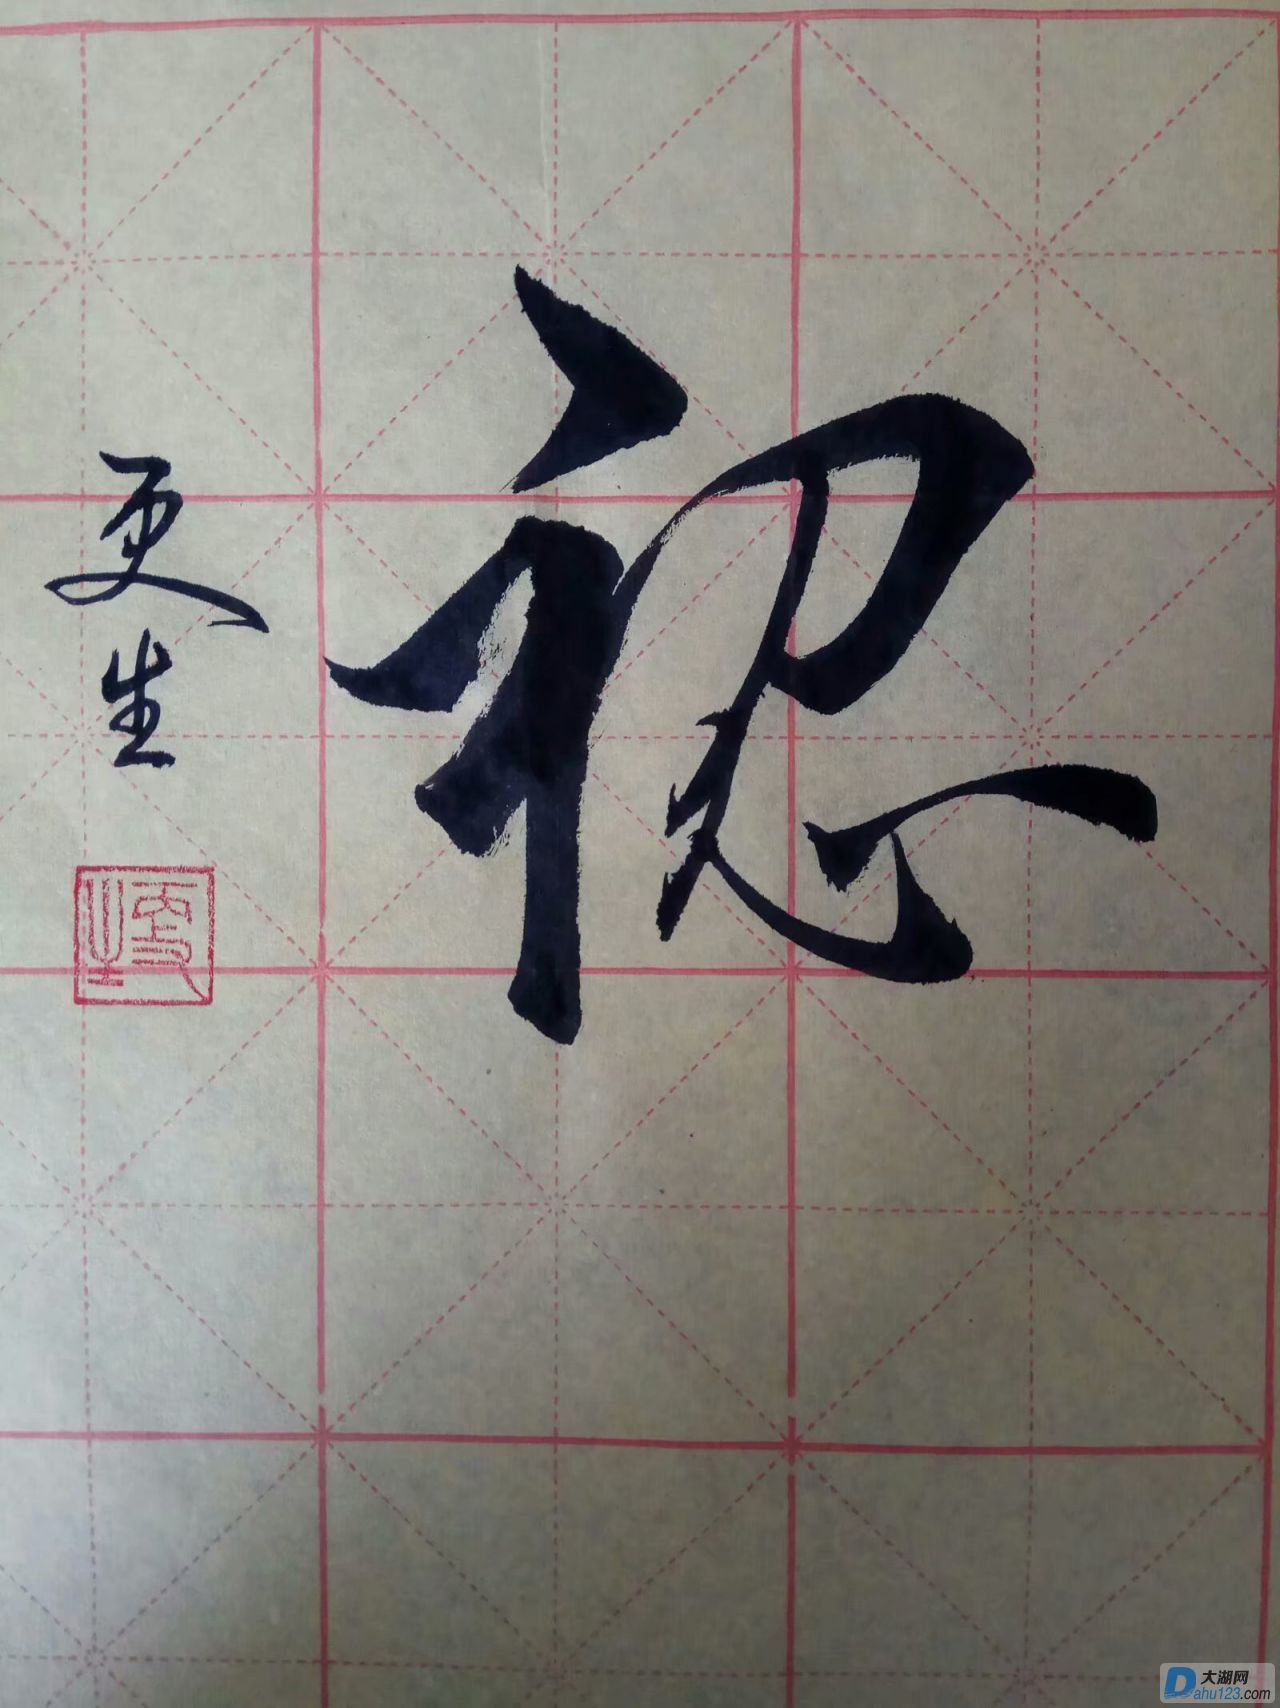 更生
更生
大湖网
Dahu123.com